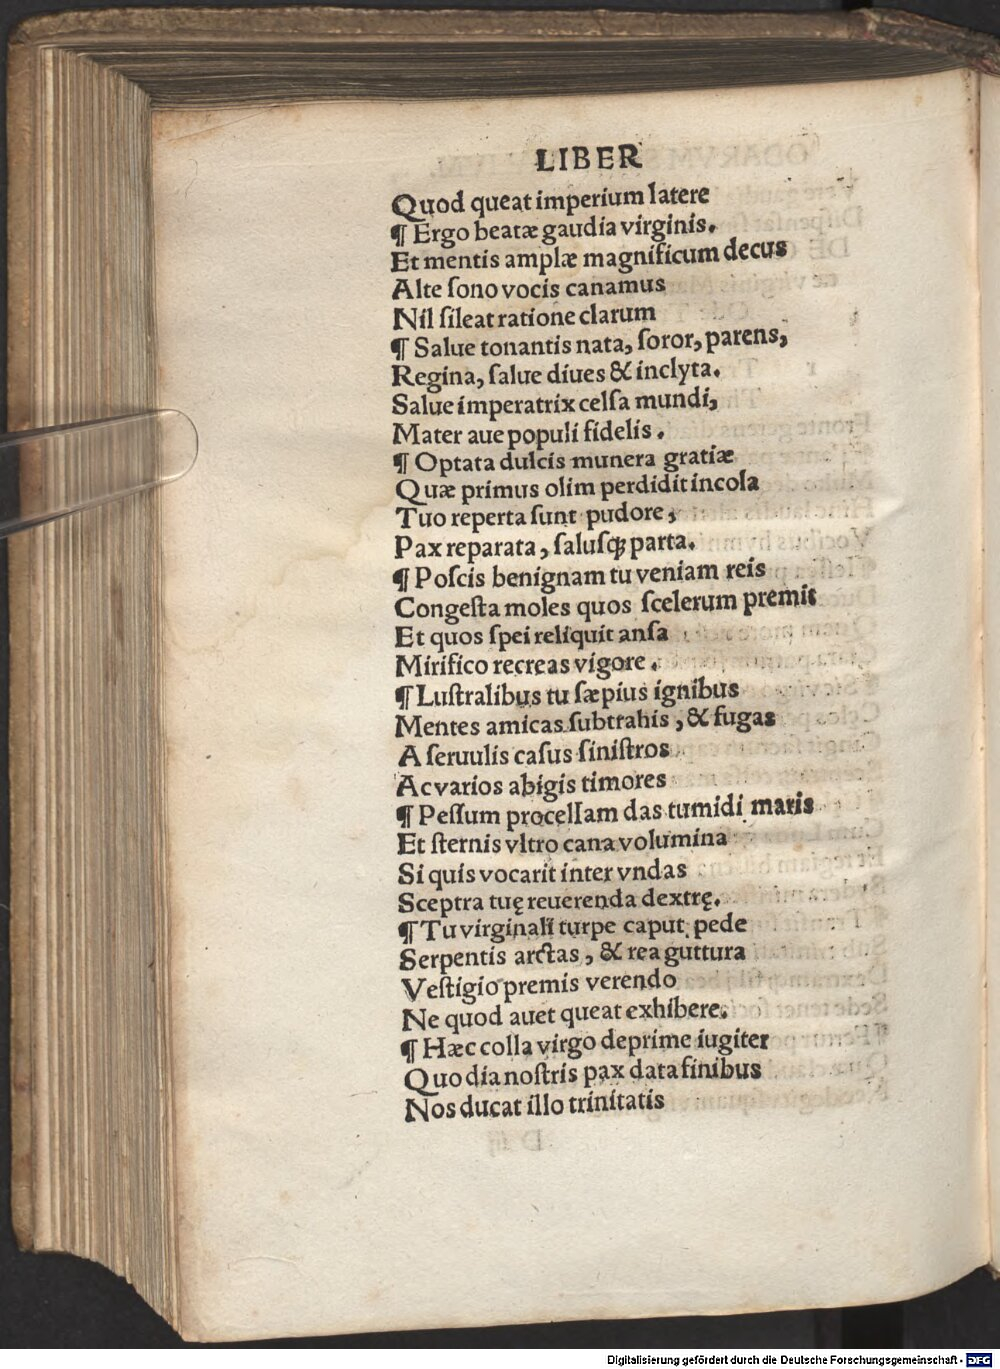 LIBER
Quod queat imperium latere
¶ Ergo beatæ gaudia virginis.
Et mentis amplæ magnificum decus
Alte ſono vocis canamus
Nil ſileat ratione clarum
¶ Salue tonantis nata, ſoror, parens,
Regina, ſalue diues & inclyta.
Salue imperatrix celſa mundi,
Mater aue populi fidelis.
¶ Optata dulcis munera gratiæ
Quæ primus olim perdidit incola
Tuo reperta ſunt pudore,
Pax reparata, ſaluſqꝫ parta.
¶ Poſcis benignam tu veniam reis
Congeſta moles quos ſcelerum premit
Et quos ſpei reliquit anſa
Mirifico recreas vigore.
¶ Luſtralibus tu ſæpius ignibus
Mentes amicas ſubtrahis, & fugas
A ſeruulis caſus ſiniſtros
Ac varios abigis timores
¶ Peſſum procellam das tumidi maris
Et ſternis vltro cana volumina
Si quis vocarit inter vndas
Sceptra tuę reuerenda dextrę.
¶ Tu virginali turpe caput pede
Serpentis arctas, & rea guttura
Veſtigio premis verendo
Ne quod auet queat exhibere.
¶ Hæc colla virgo deprime iugiter
Quo dia noſtris pax data finibus
Nos ducat illo trinitatis
Digitalisierung gefördert durch die Deutsche Forschungsgemeinschaft - DFG